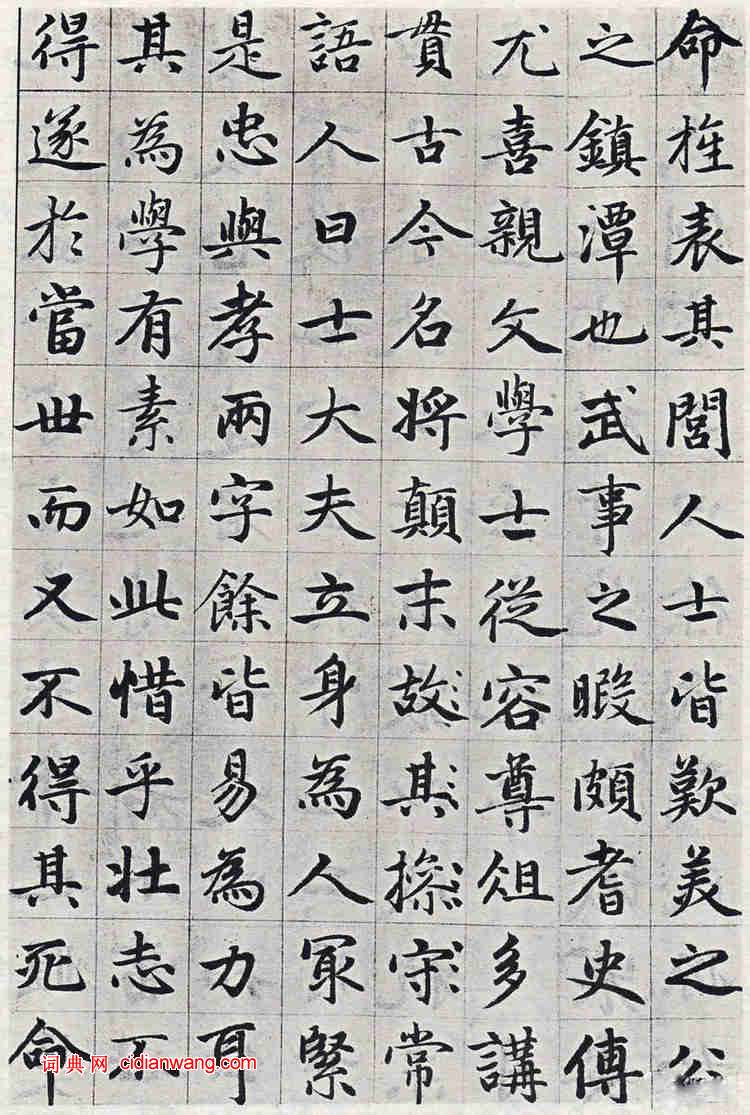 命旌表其閭人士皆歎美之公
之鎮潭也武事之暇頗耆史傳
尤喜親文學士從容尊俎多講
貫古今名將顛末故其操守常
語人曰士大夫立身為人冣緊
是忠與孝兩字餘皆易為力耳
其為學有素如此惜乎壮志不
得遂於當世而又不得其死命
词典网 cidianwang.com